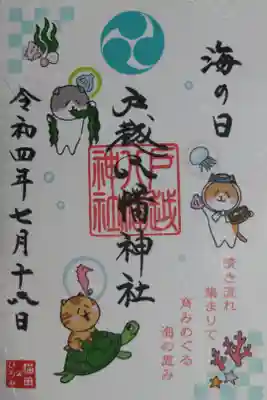 海の日
戸越八幡神社
戸越
八幡
神社
令和四年七月十八日
湊き流れ
集まりて
育みめぐる
海の恵み